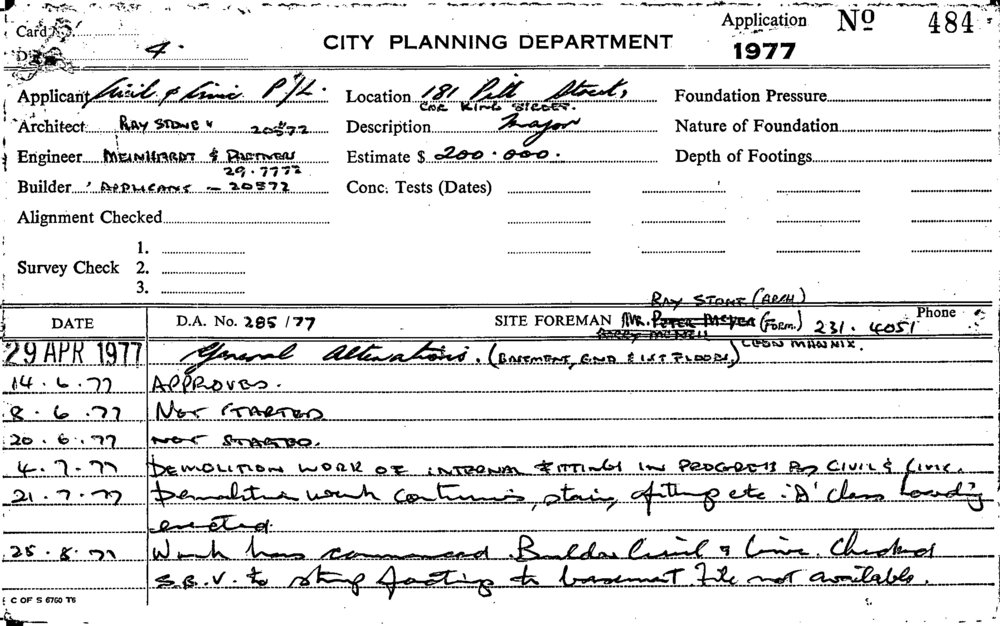 Card No.
Application Nº 484
4.
CITY PLANNING DEPARTMENT
1977
Applicant Civil & Civic P/L.
Location 181 Pitt Street,
Foundation Pressure
COR KING STREET.
Architect RAY STONE 20572
Description Major
Nature of Foundation
Engineer MEINHARDT & PARTNERS
Estimate $ 200.000.
Depth of Footings
29.7772
Builder APPLICANT — 20572
Conc. Tests (Dates)
Alignment Checked
1.
Survey Check 2.
3.
RAY STONE (ARCH)
DATE
D.A. No. 285/77
SITE FOREMAN MR. PETER MEYER (FORM.) 231.4051 Phone
BARRY McNEIL
LEON MANNIX.
29 APR 1977 General Alterations. (BASEMENT, GND & 1ST FLOORS)
14.6.77 APPROVED.
8.6.77 NOT STARTED
20.6.77 NOT STARTED.
4.7.77 DEMOLITION WORK OF INTERNAL FITTINGS IN PROGRESS BY CIVIL & CIVIC.
21.7.77 Demolition work continuing, stairs, fittings etc 'A' class hoarding
erected.
25.8.77 Work has commenced. Builder Civil & Civic. Checked
S.B.V. to strip footings to basement File not available.
C OF S 6760 T6